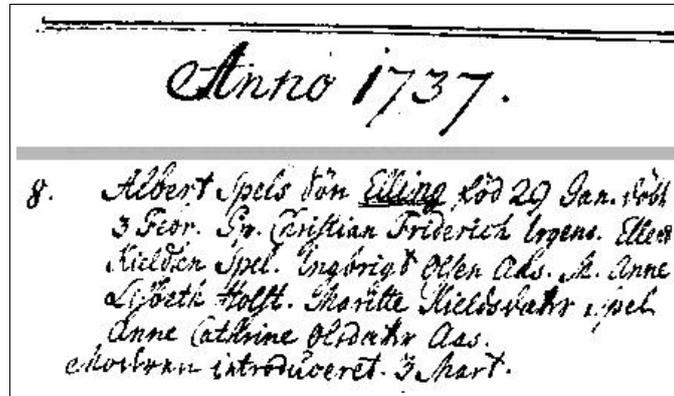 Anno 1737.
8. Albert Spels Sön Elling föd 29 Jan. döbt
3 Febr. Christian Friderich Ellert
Kieldsen Spel. Ingbrigt Olsen Aas. M. Anne
Lisbeth Holst. Maritte Kieldsdatr Spel
Anne Cathrine Olsdatr Aas.
Moderen introduceret. 3 Mart.